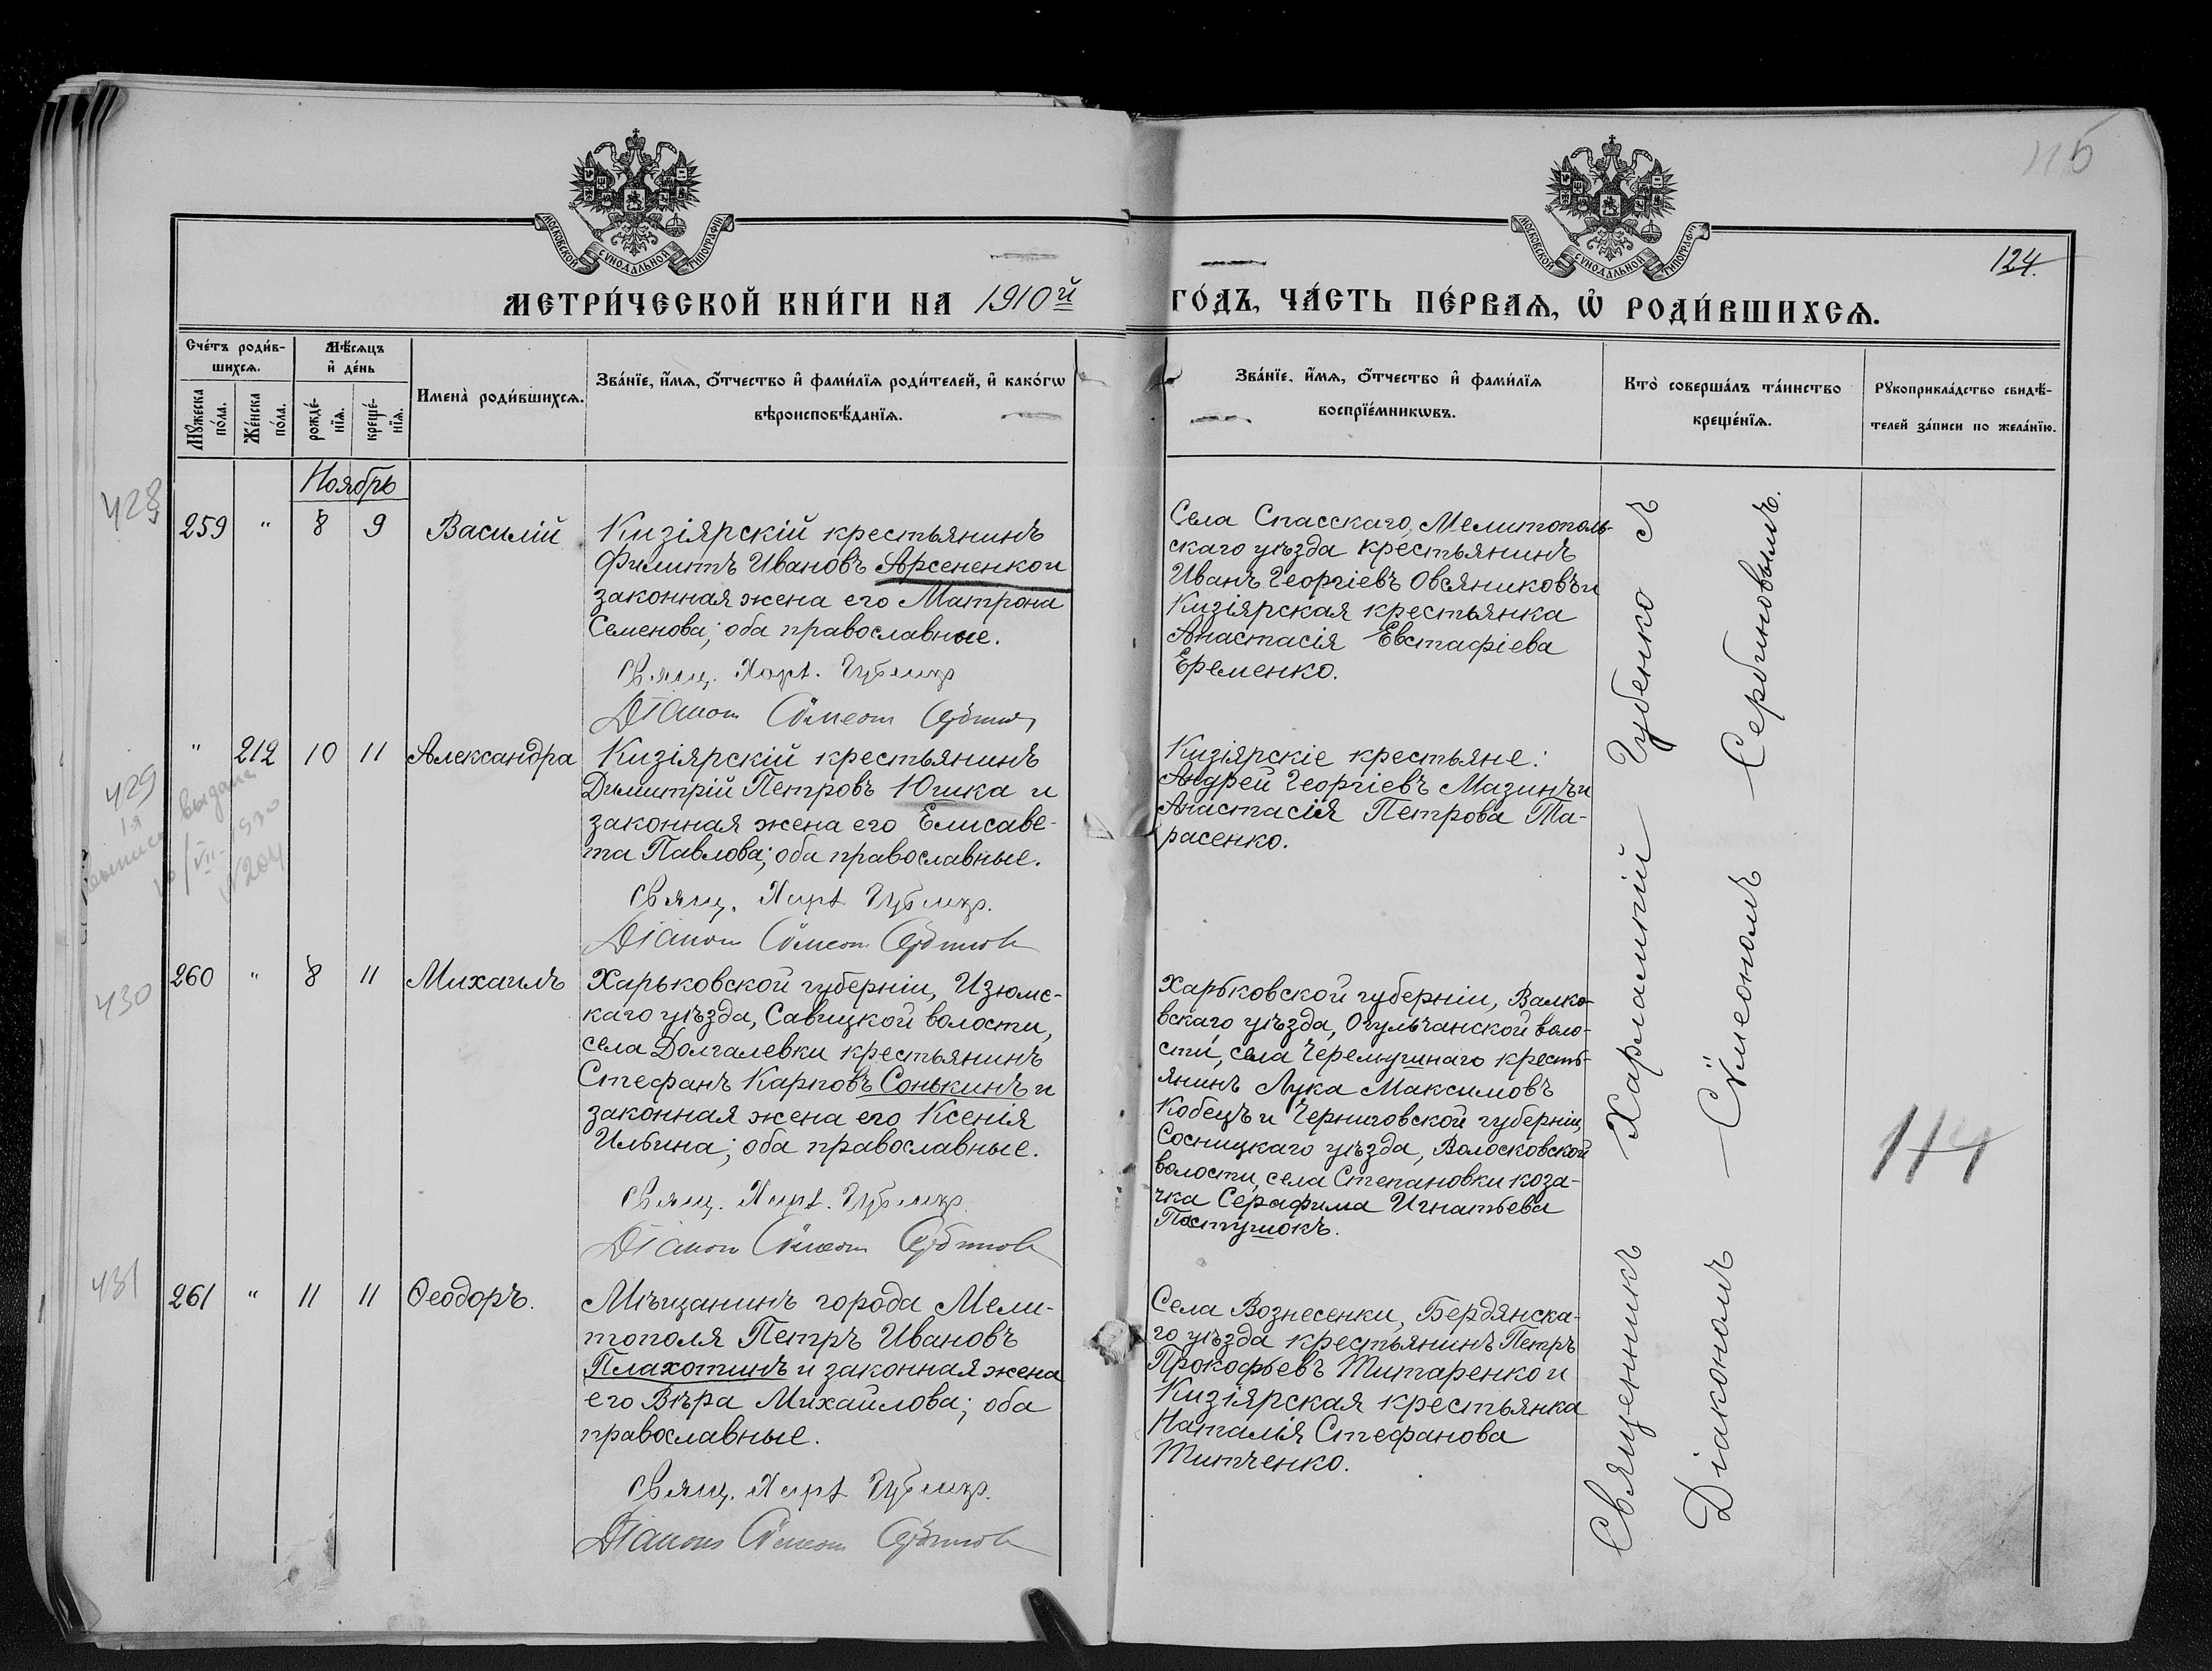 115
МОСКОВСКОЙ СѴНОДАЛЬНОЙ ТИПОГРАФІИ
МОСКОВСКОЙ СѴНОДАЛЬНОЙ ТИПОГРАФІИ
124.
МЕТРИ́ЧЕСКОЙ КНИ́ГИ НА 1910й
ГО́ДЪ, ЧА́СТЬ ПЕ́РВАѦ, Ѡ҆ РОДИ́ВШИХСѦ.
Сче́тъ роди́в-
шихсѧ.
Мꙋ́жеска по́ла.
Же́нска по́ла.
Мѣ́сѧцъ
и҆ де́нь
рожде́-
нїѧ.
креще́-
нїѧ.
Имена̀ роди́вшихсѧ.
Зва́нїе, и҆́мѧ, ѻ҆́тчество и҆ фами́лїѧ роди́телей, и҆ како́гѡ
вѣроисповѣ́данїѧ.
Зва́нїе, и҆́мѧ, ѻ҆́тчество и҆ фами́лїѧ
воспрїе́мникѡвъ.
Кто̀ соверша́лъ та́инство
креще́нїѧ.
Рꙋкоприкла́дство свидѣ́-
телей за́писи по жела́нїю.
Ноябрь
428
259 " 8 9 Василій
Кизіярскій крестьянинъ
Филиппъ Ивановъ Арсененко и
законная жена его Матрона
Семенова; оба православные.
Свящ. Харл. Губенко
Діаконъ Сѵмеонъ Сербиновъ
Села Спасскаго, Мелитополь-
скаго уѣзда крестьянинъ
Иванъ Георгіевъ Овсяниковъ и
Кизіярская крестьянка
Анастасія Евстафіева
Еременко.
429
1я
выпись выдана
10/VII-930
N 204
" 212 10 11 Александра
Кизіярскій крестьянинъ
Димитрій Петровъ Юшка и
законная жена его Елисаве-
та Павлова; оба православные.
Свящ. Харл. Губенко.
Діаконъ Сѵмеонъ Сербиновъ
Кизіярскіе крестьяне:
Андрей Георгіевъ Мазинъ и
Анастасія Петрова Та-
расенко.
430
260 " 8 11 Михаилъ
Харьковской губерніи, Изюмс-
каго уѣзда, Савицкой волости,
села Долгалевки крестьянинъ
Стефанъ Карповъ Сонькинъ и
законная жена его Ксенія
Ильина; оба православные.
Свящ. Харл. Губенко.
Діаконъ Сѵмеонъ Сербиновъ
Харьковской губерніи, Валко-
вскаго уѣзда, Огульчанской воло-
сти, села Черемушнаго кресть-
янинъ Лука Максимовъ
Кобецъ и Черниговской губерніи,
Сосницкаго уѣзда, Волосковской
волости, села Степановки коза-
чка Серафима Игнатьева
Пастушокъ.
431
261 " 11 11 Ѳеодоръ.
Мѣщанинъ города Мели-
тополя Петръ Ивановъ
Плахотинъ и законная жена
его Вѣра Михайлова; оба
православные.
Свящ. Харл. Губенко.
Діаконъ Сѵмеонъ Сербиновъ
Села Вознесенки, Бердянска-
го уѣзда крестьянинъ Петръ
Прокофьевъ Титаренко и
Кизіярская крестьянка
Наталія Стефанова
Титченко.
Священникъ Харлампій Губенко съ
Діакономъ Сѵмеономъ Сербиновымъ.
114